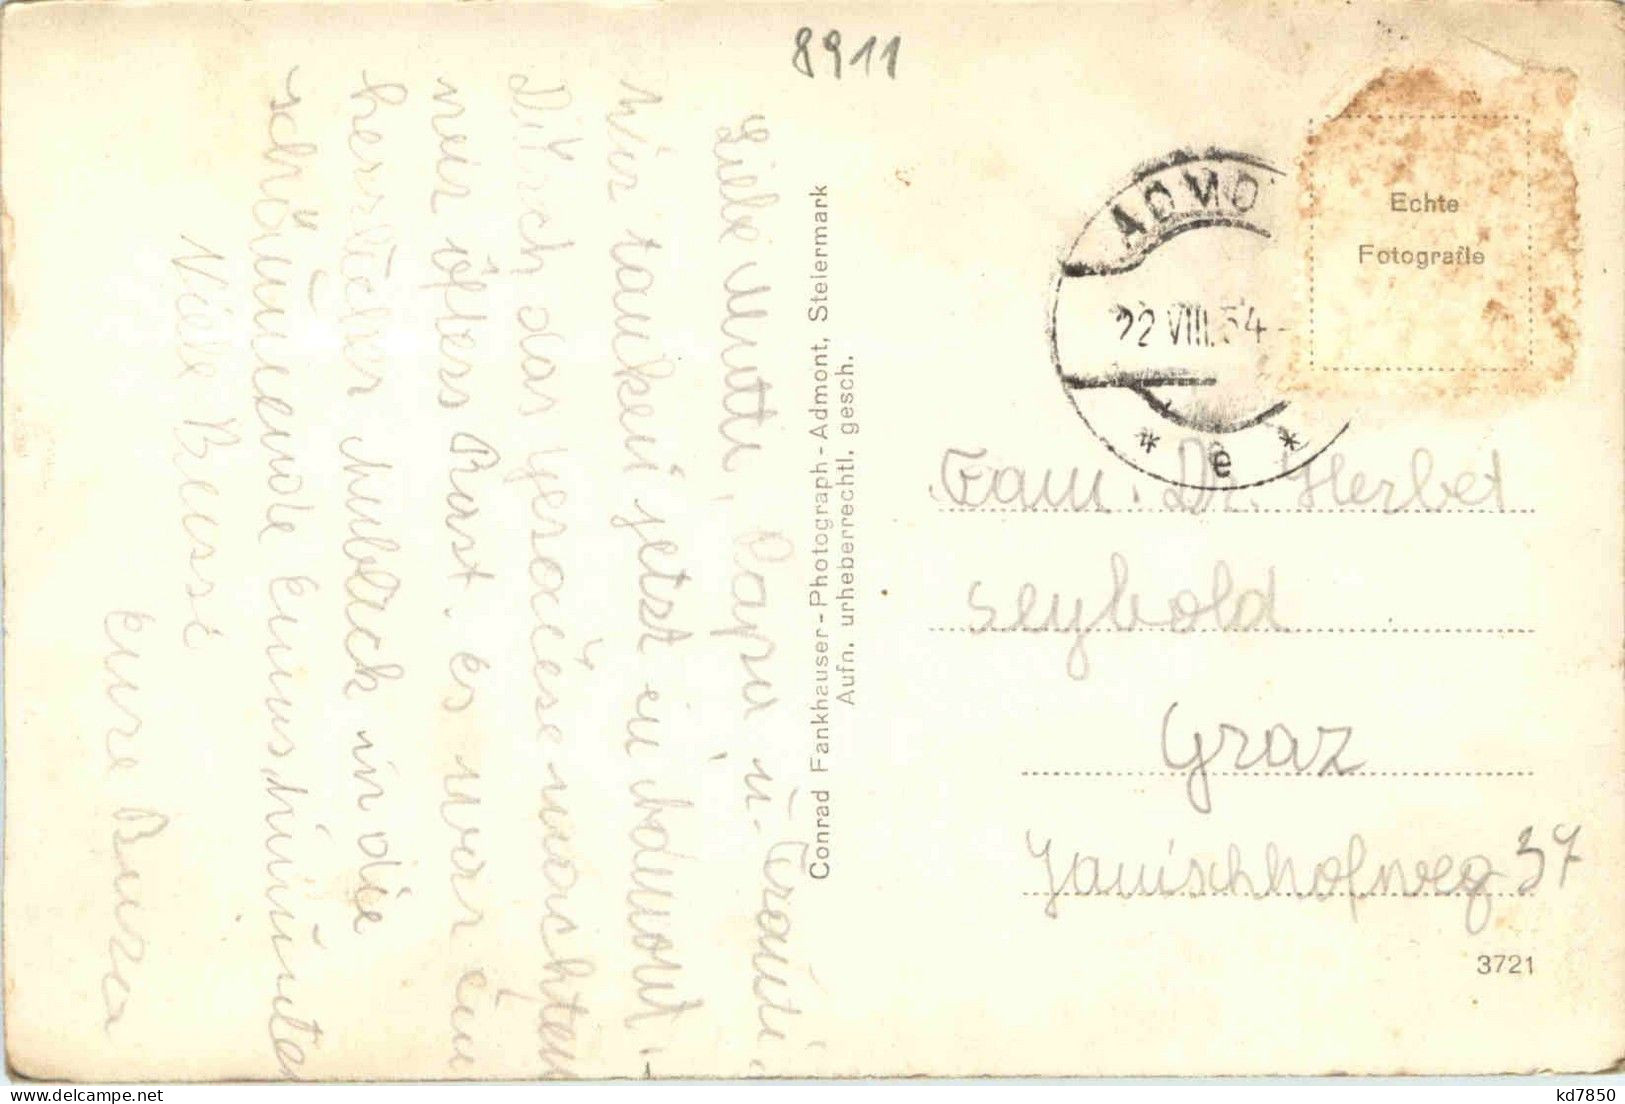 8911
Liebe Mutti, Papa u. Trauti!
Wir tanken jetzt in Admont.
Durch das Gesäuse machten
wir öfters Rast. Es war ein
herrlicher Anblick in die
schäumende Enns hinunter
Viele Bussi
Eure
Conrad Fankhauser-Photograph-Admont, Steiermark
Aufn. urheberrechtl. gesch.
ADMO
22 VIII. 54
* e *
Echte
Fotografie
Fam. Dr. Herbet
Seybold
Graz
Janischhofweg 37
3721
kd7850